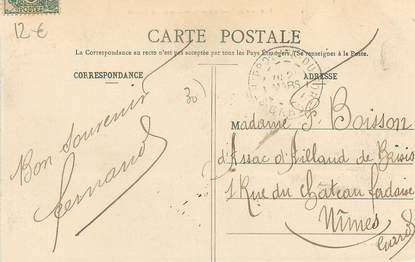 12 €
CARTE POSTALE
La Correspondance au recto n'est pas acceptée par tous les Pays Étrangers. (Se renseigner à la Poste.
CORRESPONDANCE
ADRESSE
30
Bon souvenir
Fernand
Madame F. Boisson
d'Assac d'Aillaud de Brisis
1 Rue du Château fadaise
Nîmes
Gard